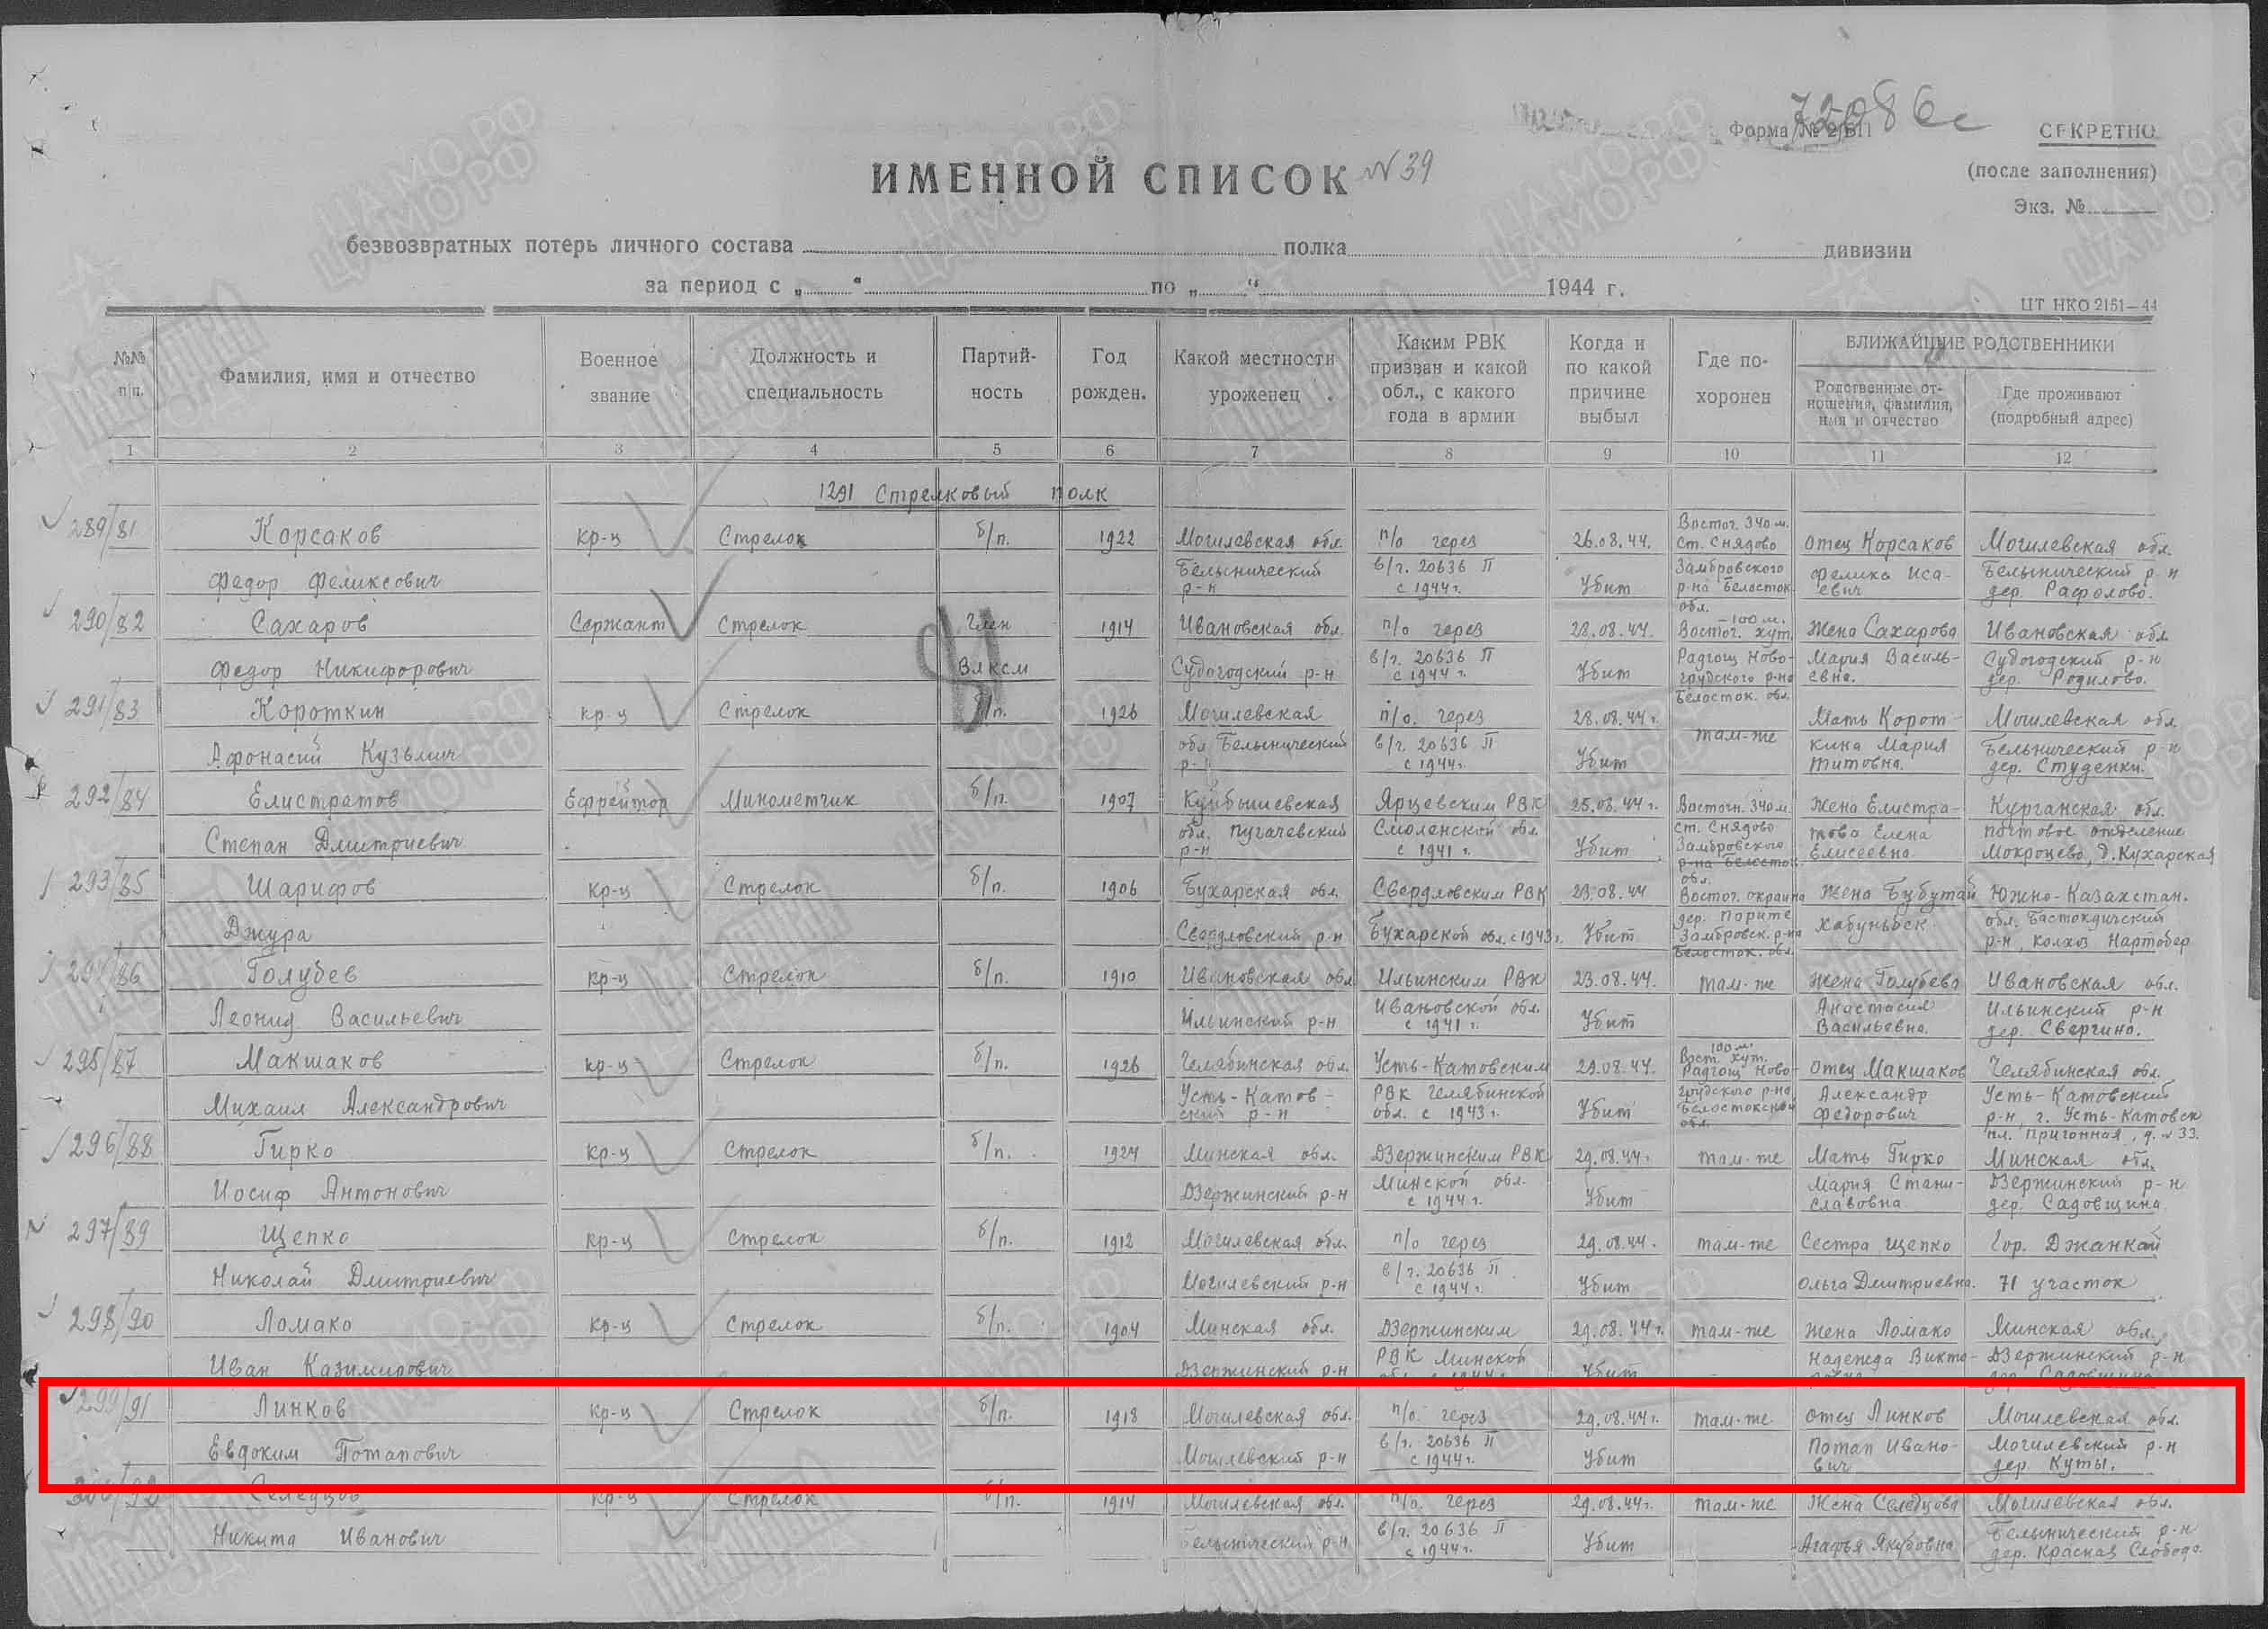 72086с
Форма № 2/БП
СЕКРЕТНО
(после заполнения)
Экз. №
ИМЕННОЙ СПИСОК № 39
безвозвратных потерь личного состава полка дивизии
за период с „ “ по „ “ 1944 г.
ЦТ НКО 2151—44
№№ п/п.
Фамилия, имя и отчество
Военное звание
Должность и специальность
Партий-ность
Год рожден.
Какой местности уроженец
Каким РВК призван и какой обл., с какого года в армии
Когда и по какой причине выбыл
Где по-хоронен
БЛИЖАЙШИЕ РОДСТВЕННИКИ
Родственные от-ношения, фамилия, имя и отчество
Где проживают (подробный адрес)
1 2 3 4 5 6 7 8 9 10 11 12
1291 Стрелковый полк
289/81 Корсаков Федор Феликсович кр-ц Стрелок б/п. 1922 Могилевская обл. Белынический р-н п/о через в/ч. 20636 П с 1944г. 26.08.44. Убит Восточ. 340 м. ст. Снядово Замбровского р-на Белосток. обл. отец Корсаков Феликс Иса-евич Могилевская обл. Белынический р-н дер. Рафолово.
290/82 Сахаров Федор Никифорович Сержант Стрелок Член ВЛКСМ 1914 Ивановская обл. Судогодский р-н п/о через в/ч. 20636 П с 1944 г. 28.08.44. Убит -100 м. Восточ. хут. Радгощ Ново-грудского р-на Белосток. обл. Жена Сахарова Мария Василь-евна. Ивановская обл. Судогодский р-н дер. Родилово.
291/83 Короткин Афонасий Кузьмич кр-ц Стрелок б/п. 1926 Могилевская обл. Белынический р-н п/о. через в/ч. 20636 П с 1944г. 28.08.44 г. Убит там-же Мать Корот-кина Мария Титовна. Могилевская обл. Белынический р-н дер. Студенки.
292/84 Елистратов Степан Дмитриевич Ефрейтор Минометчик б/п. 1907 Куйбышевская обл. Пугачевский р-н Ярцевским РВК Смоленской обл. с 1941 г. 25.08.44 г. Убит Восточн. 340 м. ст. Снядово Замбровского р-на Белосток. обл. Жена Елистра-това Елена Елисеевна Курганская обл. почтовое отделение Мокроцево, д. Кухарская
293/85 Шарифов Джура Кр-ц Стрелок б/п. 1906 Бухарская обл. Свердловский р-н Свердловским РВК Бухарской обл. с 1943 г. 23.08.44 Убит Восточ. окраина дер. Порите Замбровск. р-на Белосток. обл. Жена Бубутай Хабуньбек Южно-Казахстан. обл. Бастокдичский р-н, колхоз Нартобер
294/86 Голубев Леонид Васильевич кр-ц Стрелок б/п. 1910 Ивановская обл Ильинский р-н Ильинским РВК Ивановской обл. с 1941 г. 23.08.44. Убит там-же Жена Голубева Анастасия Васильевна. Ивановская обл. Ильинский р-н дер. Сверчино.
295/87 Макшаков Михаил Александрович кр-ц Стрелок б/п. 1926 Челябинская обл. Усть-Катов-ский р-н Усть-Катовским РВК Челябинской обл. с 1943 г. 29.08.44. Убит 100 м. Вост. хут. Радгощ Ново-грудского р-на Белостокской обл. отец Макшаков Александр Федорович Челябинская обл. Усть-Катовский р-н, г. Усть-Катовск ул. Пригонная, д. № 33.
296/88 Гирко Иосиф Антонович кр-ц Стрелок б/п. 1924 Минская обл. Дзержинский р-н Дзержинским РВК Минской обл. с 1944 г. 29.08.44 г. Убит там-же Мать Гирко Мария Стани-славовна Минская обл. Дзержинский р-н дер. Садовщина
297/89 Щепко Николай Дмитриевич кр-ц Стрелок б/п. 1912 Могилевская обл. Могилевский р-н п/о через в/ч. 20636 П с 1944 г. 29.08.44. Убит там-же Сестра Щепко Ольга Дмитриевна. Гор. Джанкой 71 участок
298/90 Ломако Иван Казимирович кр-ц Стрелок б/п. 1904 Минская обл. Дзержинский р-н Дзержинским РВК Минской 29.08.44 г. Убит там-же Жена Ломако Надежда Викто- Минская обл. Дзержинский р-н дер. Садовщина
299/91 Линков Евдоким Потапович кр-ц Стрелок б/п. 1918 Могилевская обл. Могилевский р-н п/о. через в/ч. 20636 П с 1944г. 29.08.44 г. Убит там-же отец Линков Потап Ивано-вич Могилевская обл. Могилевский р-н дер. Куты.
300/92 Селедцов Никита Иванович кр-ц Стрелок б/п. 1914 Могилевская обл. Белынический р-н п/о. через в/ч. 20636 П с 1944г. 29.08.44 г. Убит там-же Жена Селедцова Агафья Якубовна Могилевская обл. Белынический р-н дер. Красная Слобода.